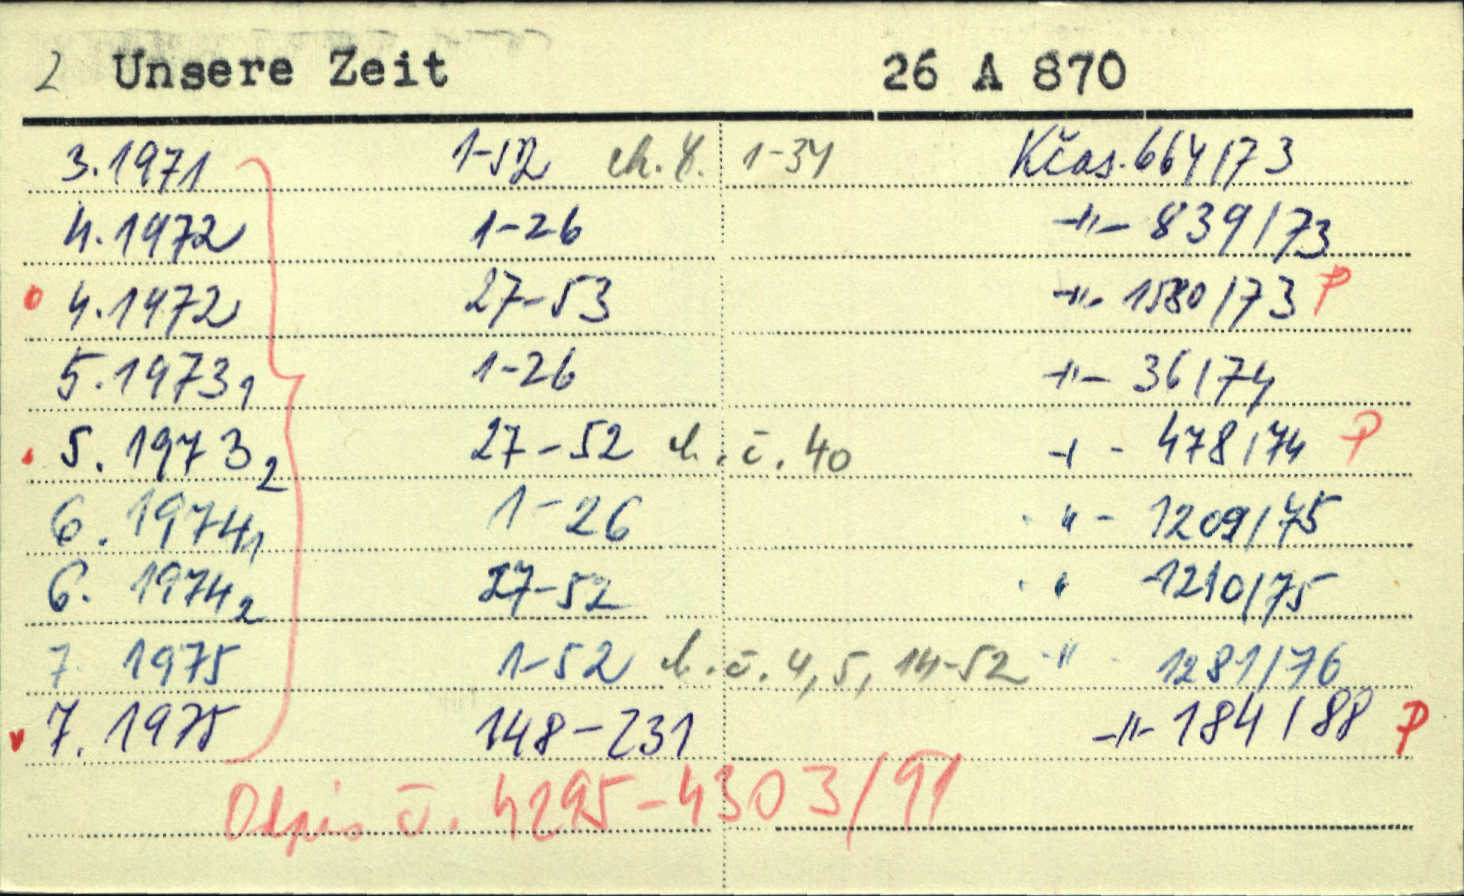 2 Unsere Zeit 26 A 870
3.1971 1-52 ch.č. 1-34 Kčas. 664/73
4.1972 1-26 -"- 839/73
4.1972 27-53 -"- 1580/73 P
5.1973₁ 1-26 -"- 36/74
5.1973₂ 27-52 ch.č. 40 -"- 478/74 P
6.1974₁ 1-26 -"- 1209/75
6.1974₂ 27-52 " 1210/75
7.1975 1-52 ch.č. 4, 5, 14-52 -"- 1281/76
7.1975 148-231 -"- 184/88 P
Odpis č. 4295-4303/91